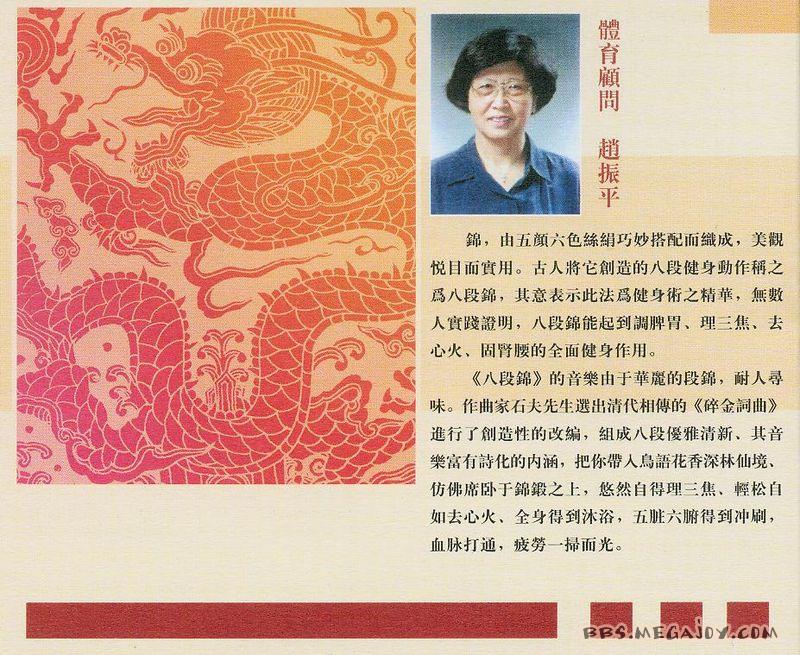 體育顧問 趙振平
錦，由五顔六色絲絹巧妙搭配而織成，美觀
悦目而實用。古人將它創造的八段健身動作稱之
爲八段錦，其意表示此法爲健身術之精華，無數
人實踐證明，八段錦能起到調脾胃、理三焦、去
心火、固腎腰的全面健身作用。
《八段錦》的音樂由于華麗的段錦，耐人尋
味。作曲家石夫先生選出清代相傳的《碎金詞曲》
進行了創造性的改編，組成八段優雅清新、其音
樂富有詩化的内涵，把你帶入鳥語花香深林仙境、
仿佛席卧于錦鍛之上，悠然自得理三焦、輕松自
如去心火、全身得到沐浴，五脏六腑得到冲刷，
血脉打通，疲勞一掃而光。
BBS.MEGAJOY.COM